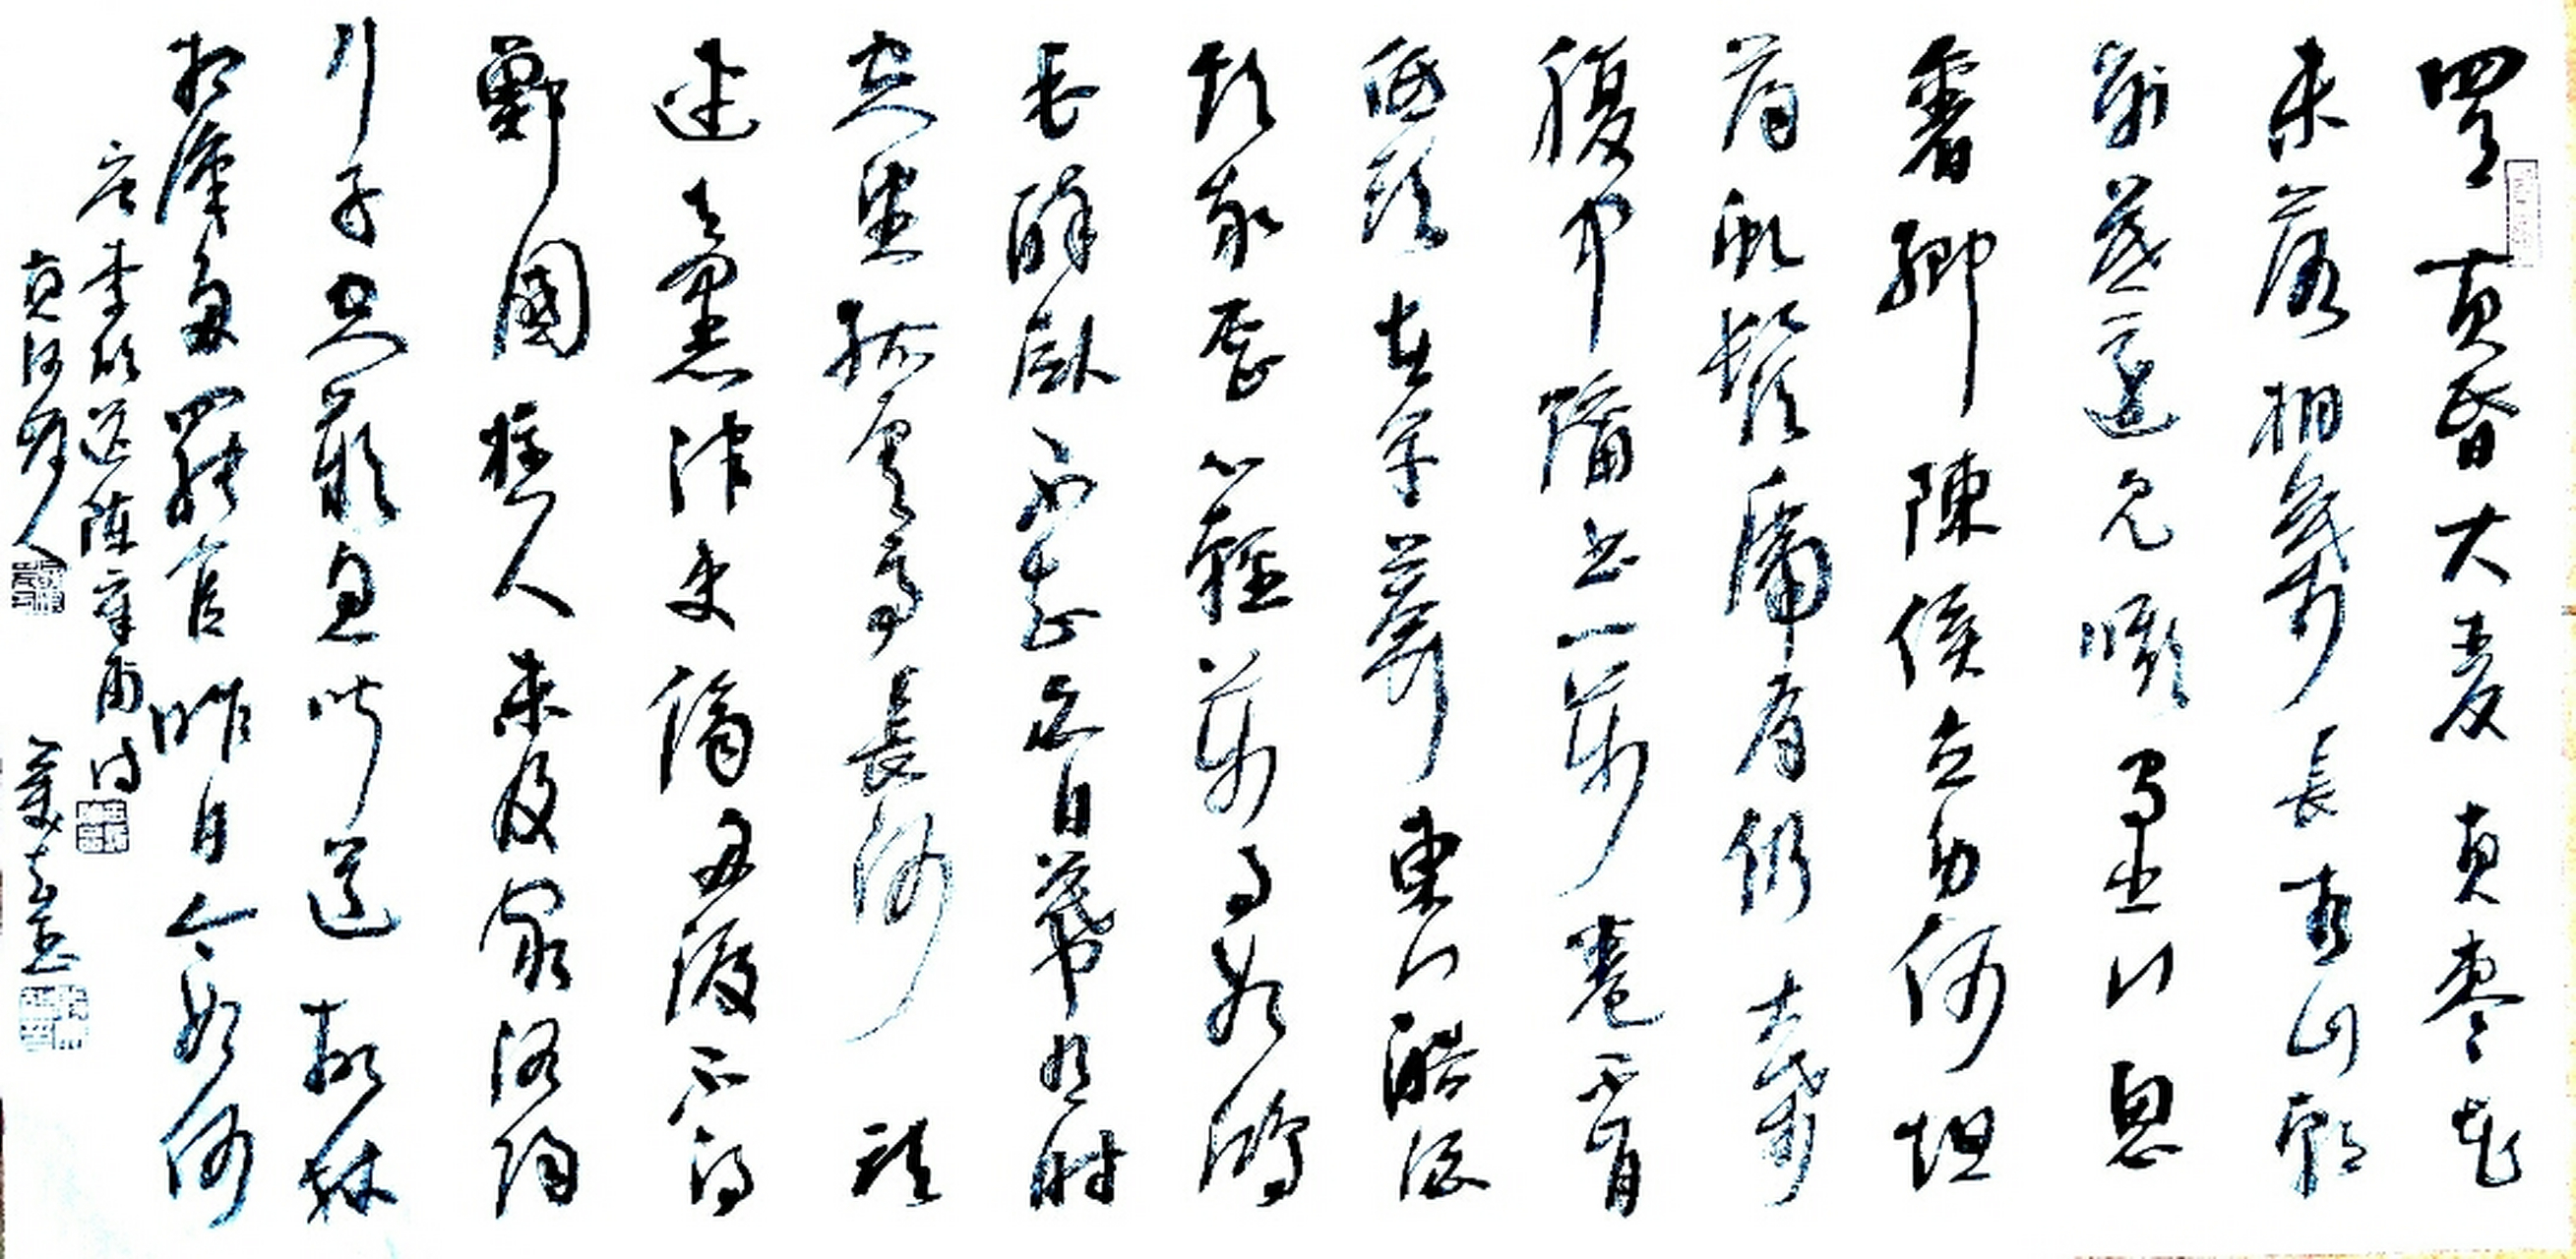 四月南風大麦黄棗花
未落桐葉長青山朝
別暮還見嘶馬出門思
舊鄉陳侯立身何坦
蕩虬鬚虎眉仍大顙
腹中貯書一萬卷不肯
低頭在草莽東門酤酒
飲我曹心輕萬事如鴻
毛醉臥不知白日暮有時
空望孤雲高長河浪頭
連天黑津吏停舟渡不得
鄭國遊人未及家洛陽
行子空歎息聞道故林
相識多罷官昨日今如何
唐李頎送陳章甫詩